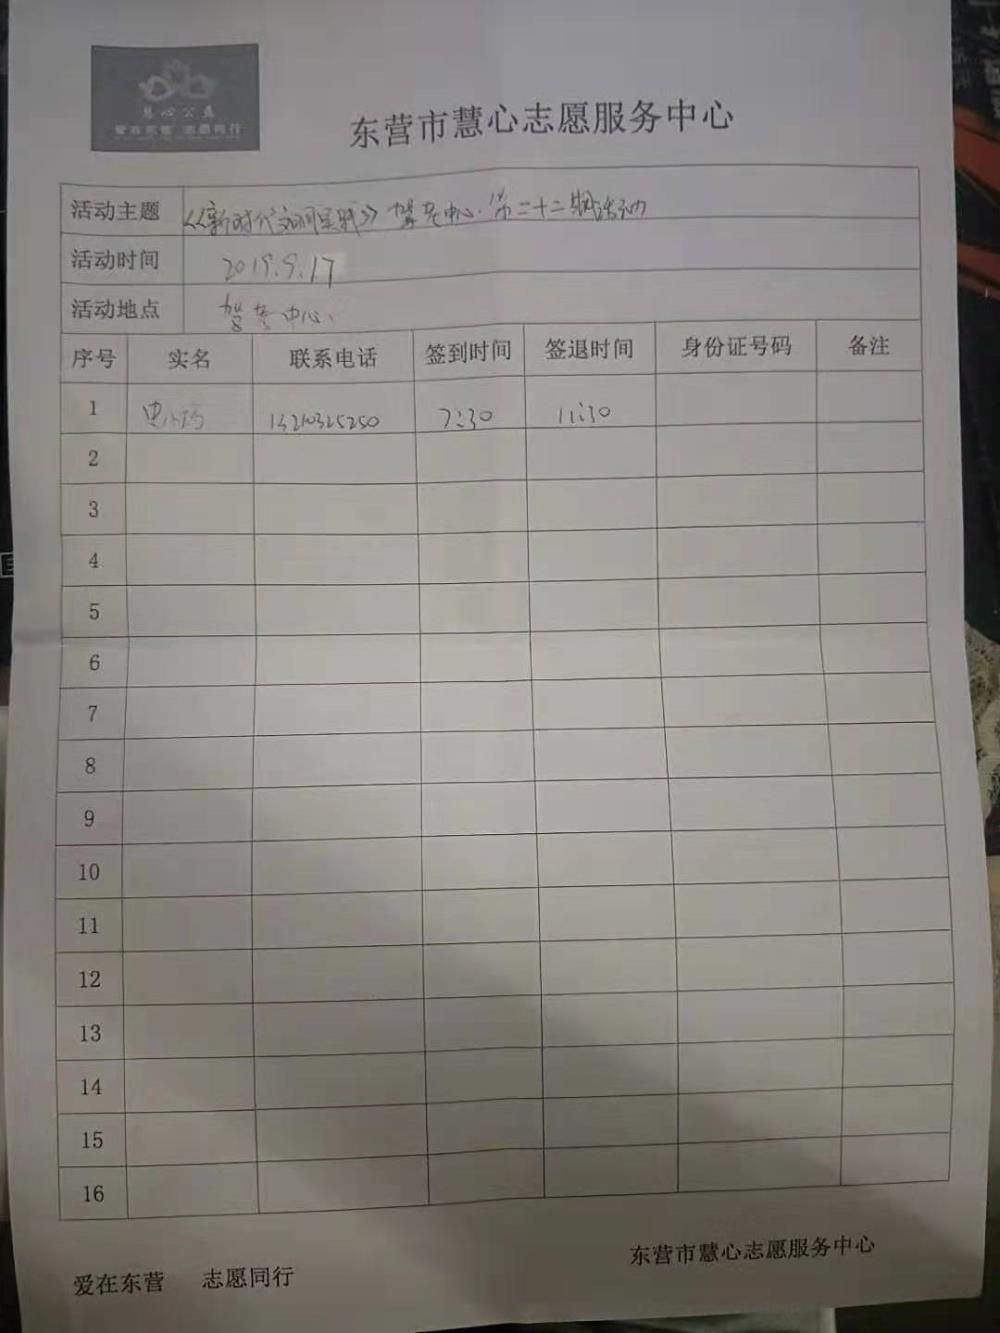 慧心公益
爱在东营 志愿同行
东营市慧心志愿服务中心
活动主题 《新时代文明实践》驾考中心.第二十二期活动
活动时间 2019.9.17
活动地点 驾考中心.
序号 实名 联系电话 签到时间 签退时间 身份证号码 备注
1 13210325250 7:30 11:30
2
3
4
5
6
7
8
9
10
11
12
13
14
15
16
东营市慧心志愿服务中心
爱在东营 志愿同行